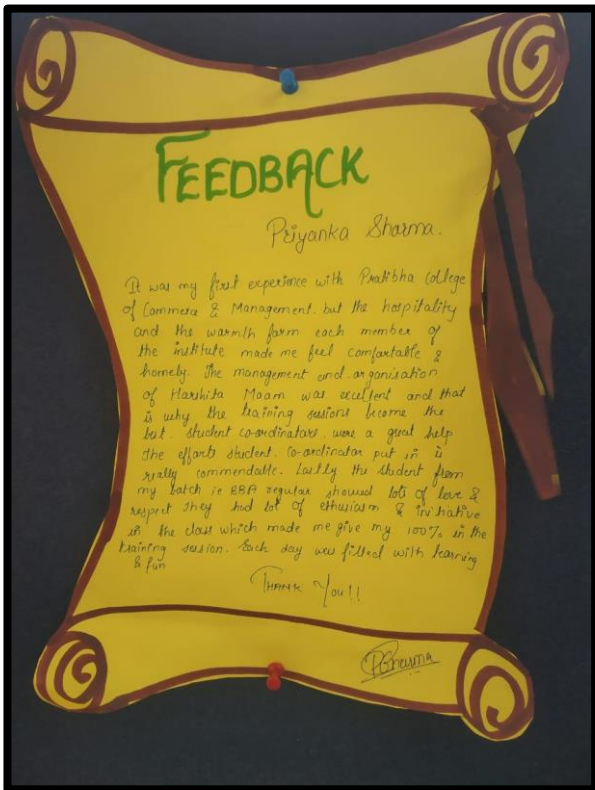 FEEDBACK
Priyanka Sharma.
It was my first experience with Pratibha College
of Commerce & Management. but the hospitality
and the warmth farm each member of
the institute made me feel comfartable &
homely. The management and organisation
of Harshita Maam was excellent and that
is why the training sesions become the
but. Student co-ordinators were a great help
The efforts student. Co-ordinator put in is
really commendable. Lastly the student from
my batch ie BBA regular showed lots of love &
respect They had lot of ethusiasm & initiative
in the class which made me give my 100% in the
training session. Each day was filled with learning
& fun
Thank You!!
PSharma